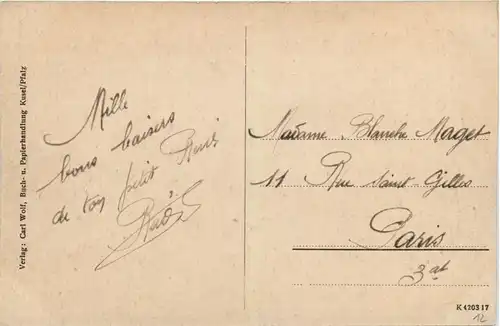 Verlag: Carl Wolf, Buch- u. Papierhandlung Kusel/Pfalz
Mille
bons baisers
de ton petit
Madame Blanche Maget
11 Rue Saint-Gilles
Paris
3at
K 420317
12